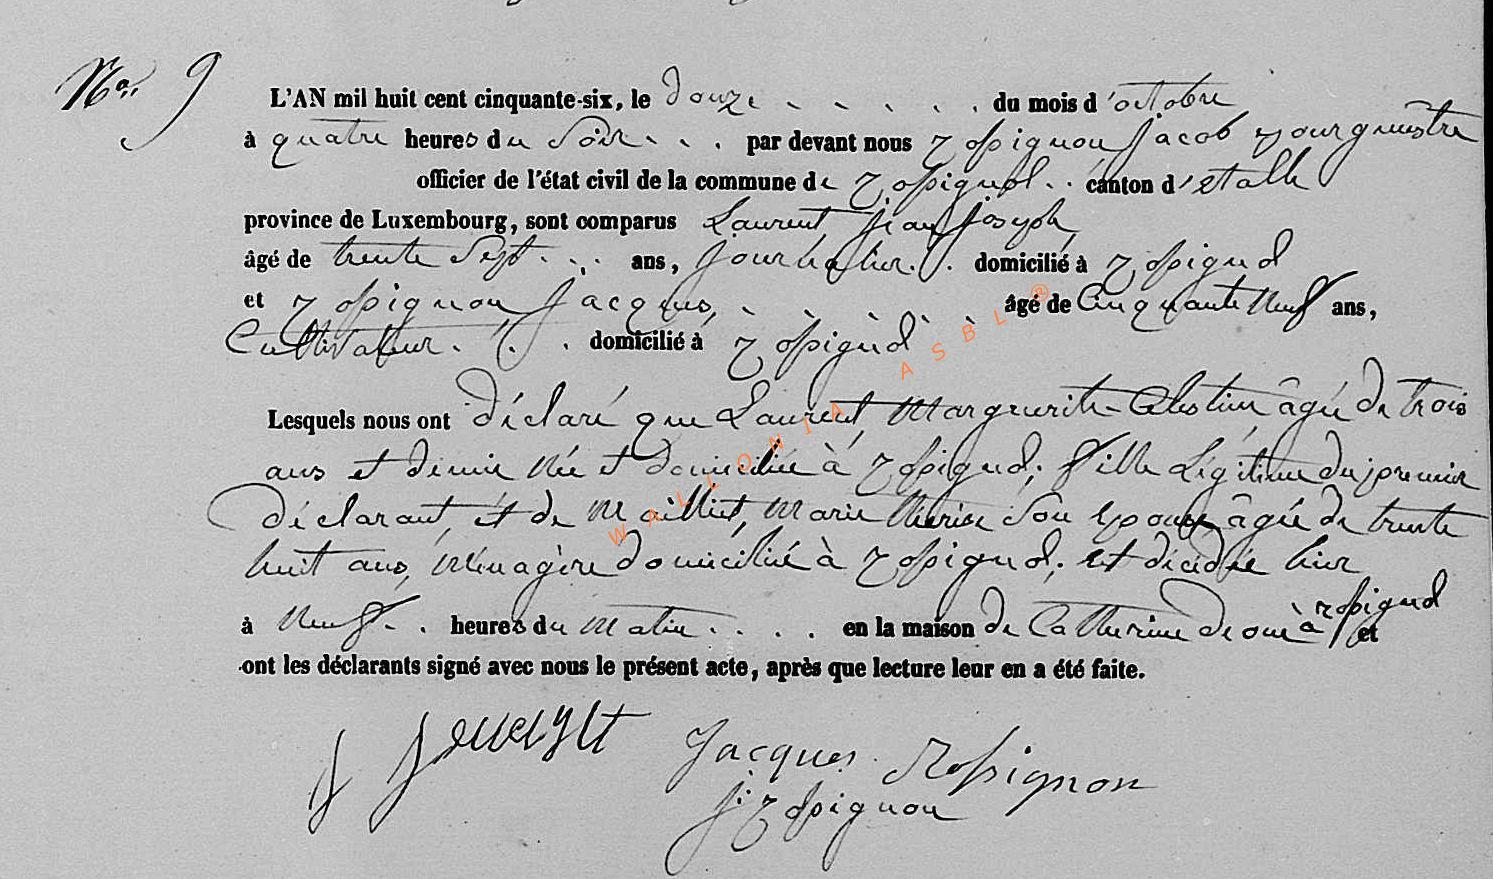 No. 9
L'AN mil huit cent cinquante-six, le douze - - - - - . du mois d'octobre
à quatre heures du Soir - - . par devant nous Rossignon Jacob Bourgmestre
officier de l'état civil de la commune de Rossignol . . canton d'Etalle
province de Luxembourg, sont comparus Laurent, Jean Joseph,
âgé de trente Sept . . . ans, Journalier . . . domicilié à Rossignol
et Rossignon Jacques, - - - - - âgé de Cinquante Neuf ans,
Cultivateur . . . domicilié à Rossignol
Lesquels nous ont déclaré que Laurent, Marguerite Celestine, âgée de trois
ans et demie Née et domiciliée à Rossignol, fille Légitime du premier
déclarant, et de Marie Thérèse Son Epouse âgée de trente
huit ans, Ménagère domiciliée à Rossignol, est décédée hier
à Neuf . . heures du Matin . . . . en la maison de Catherine à Rossignol et
ont les déclarants signé avec nous le présent acte, après que lecture leur en a été faite.
Jacques Rossignon
J. Rossignon
WALLONIA ASBL ®